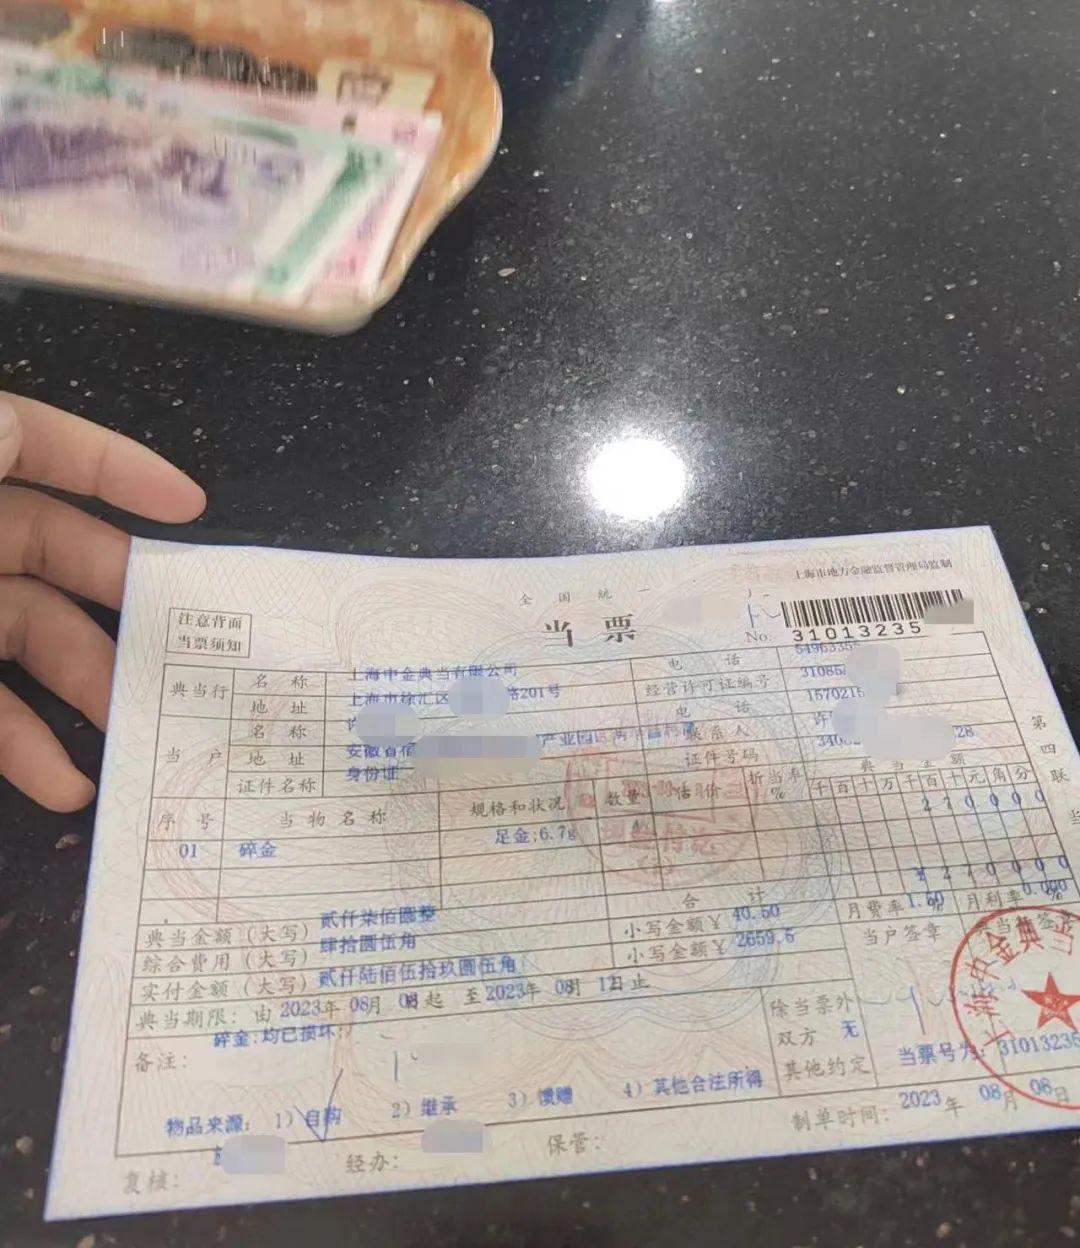 上海市地方金融监督管理局监制
全国统一
当票
注意背面
当票须知
No: 31013235
典当行 名称 上海申金典当有限公司 电话 5496335
地址 上海市徐汇区 路201号 经营许可证编号 31085
当户 名称 许 电话 1570215
地址 安徽省宿 产业园 联系人 许
证件名称 身份证 证件号码 340 28
序号 当物名称 规格和状况 数量 估价 折当率% 典当金额
千百十万千百十元角分
01 碎金 足金;6.7g 270000
合计 ¥270000
典当金额(大写) 贰仟柒佰圆整
综合费用(大写) 肆拾圆伍角 小写金额¥ 40.50 月费率1.50% 月利率0.000%
实付金额(大写) 贰仟陆佰伍拾玖圆伍角 小写金额¥ 2659.5 当户签章 典当行签章
典当期限: 由 2023年 08月 08日起 至 2023年 08月 12日止
备注: 碎金:均已损坏;
除当票外
双方 无
其他约定
当票号为: 31013235
物品来源: 1) 自购 2) 继承 3) 馈赠 4) 其他合法所得
制单时间: 2023年 08月 08日
复核: 经办: 保管:
第四联
上海申金典当